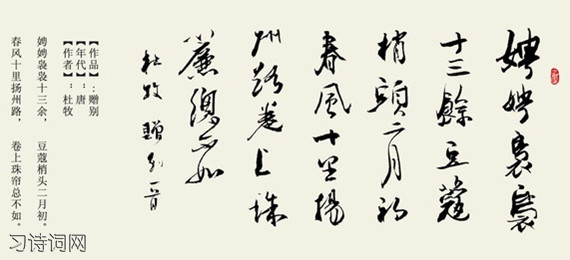 娉娉裊裊
十三餘豆蔻
梢頭二月初
春風十里揚
州路卷上珠
簾總不如
杜牧贈別一首
【作品】:赠别
【年代】:唐
【作者】:杜牧
娉娉袅袅十三余， 豆蔻梢头二月初。
春风十里扬州路， 卷上珠帘总不如。
习诗词网